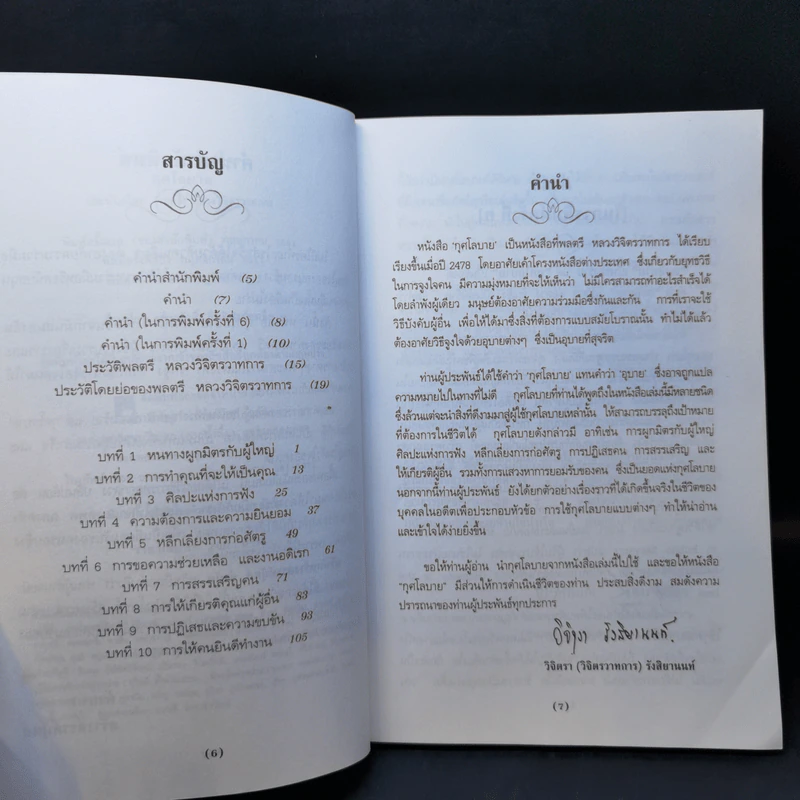 สารบัญ
คำนำสำนักพิมพ์ (5)
คำนำ (7)
คำนำ (ในการพิมพ์ครั้งที่ 6) (8)
คำนำ (ในการพิมพ์ครั้งที่ 1) (10)
ประวัติพลตรี หลวงวิจิตรวาทการ (15)
ประวัติโดยย่อของพลตรี หลวงวิจิตรวาทการ (19)
บทที่ 1 หนทางผูกมิตรกับผู้ใหญ่ 1
บทที่ 2 การทำคุณที่จะให้เป็นคุณ 13
บทที่ 3 ศิลปะแห่งการฟัง 25
บทที่ 4 ความต้องการและความยินยอม 37
บทที่ 5 หลีกเลี่ยงการก่อศัตรู 49
บทที่ 6 การขอความช่วยเหลือ และงานอดิเรก 61
บทที่ 7 การสรรเสริญคน 71
บทที่ 8 การให้เกียรติคุณแก่ผู้อื่น 83
บทที่ 9 การปฏิเสธและความขบขัน 93
บทที่ 10 การให้คนยินดีทำงาน 105
(6)
คำนำ
หนังสือ 'กุศโลบาย' เป็นหนังสือที่พลตรี หลวงวิจิตรวาทการ ได้เรียบ
เรียงขึ้นเมื่อปี 2478 โดยอาศัยเค้าโครงหนังสือต่างประเทศ ซึ่งเกี่ยวกับยุทธวิธี
ในการจูงใจคน มีความมุ่งหมายที่จะให้เห็นว่า ไม่มีใครสามารถทำอะไรสำเร็จได้
โดยลำพังผู้เดียว มนุษย์ต้องอาศัยความร่วมมือซึ่งกันและกัน การที่เราจะใช้
วิธีบังคับผู้อื่น เพื่อให้ได้มาซึ่งสิ่งที่ต้องการแบบสมัยโบราณนั้น ทำไม่ได้แล้ว
ต้องอาศัยวิธีจูงใจด้วยอุบายต่างๆ ซึ่งเป็นอุบายที่สุจริต
ท่านผู้ประพันธ์ได้ใช้คำว่า 'กุศโลบาย' แทนคำว่า 'อุบาย' ซึ่งอาจถูกแปล
ความหมายไปในทางที่ไม่ดี กุศโลบายที่ท่านได้พูดถึงในหนังสือเล่มนี้มีหลายชนิด
ซึ่งล้วนแต่จะนำสิ่งที่ดีงามมาสู่ผู้ใช้กุศโลบายเหล่านั้น ให้สามารถบรรลุถึงเป้าหมาย
ที่ต้องการในชีวิตได้ กุศโลบายดังกล่าวมี อาทิเช่น การผูกมิตรกับผู้ใหญ่
ศิลปะแห่งการฟัง หลีกเลี่ยงการก่อศัตรู การปฏิเสธคน การสรรเสริญ และ
ให้เกียรติผู้อื่น รวมทั้งการแสวงหาการยอมรับของคน ซึ่งเป็นยอดแห่งกุศโลบาย
นอกจากนี้ท่านผู้ประพันธ์ ยังได้ยกตัวอย่างเรื่องราวที่ได้เกิดขึ้นจริงในชีวิตของ
บุคคลในอดีตเพื่อประกอบหัวข้อ การใช้กุศโลบายแบบต่างๆ ทำให้น่าอ่าน
และเข้าใจได้ง่ายยิ่งขึ้น
ขอให้ท่านผู้อ่าน นำกุศโลบายจากหนังสือเล่มนี้ไปใช้ และขอให้หนังสือ
"กุศโลบาย" มีส่วนให้การดำเนินชีวิตของท่าน ประสบสิ่งดีงาม สมดังความ
ปรารถนาของท่านผู้ประพันธ์ทุกประการ
วิจิตรา รังสิยานนท์
วิจิตรา (วิจิตรวาทการ) รังสิยานนท์
(7)